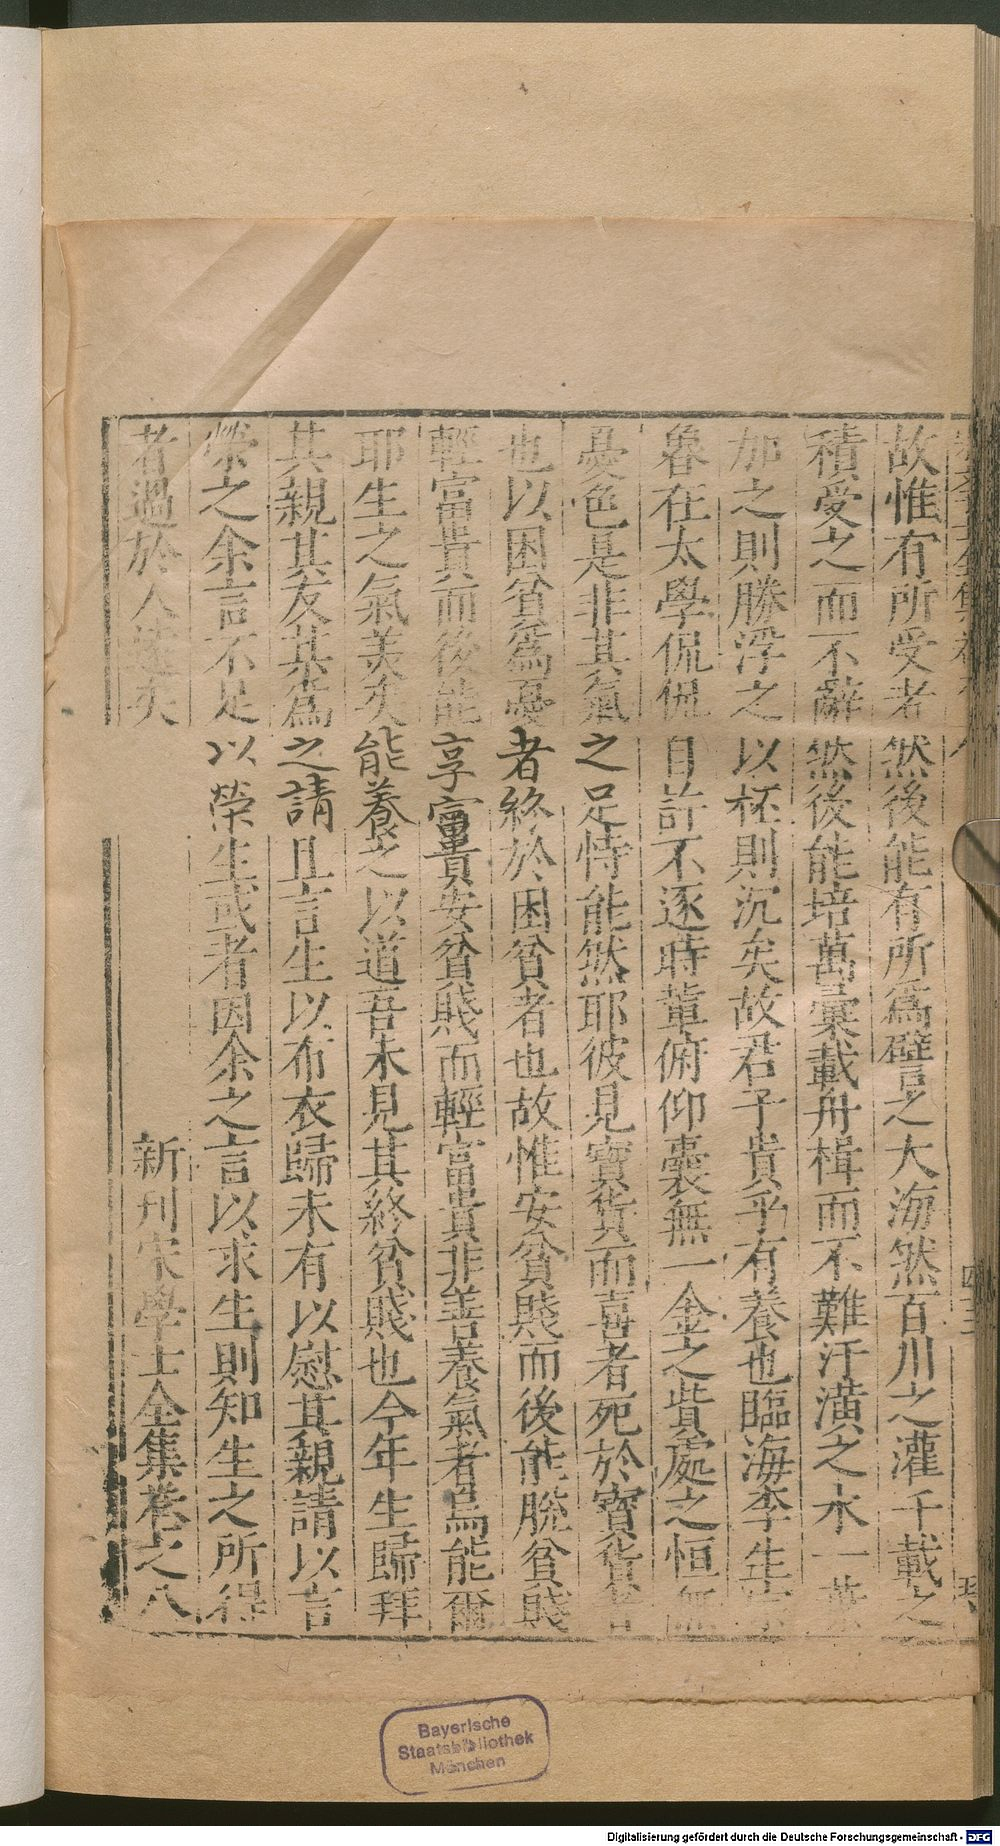 故惟有所受者然後能有所為譬之大海然百川之灌千載之
積受之而不辭然後能培萬彙載舟楫而不難汙潢之水一葉
加之則勝浮之以杯則沉矣故君子貴乎有養也臨海李生宗
魯在太學侃侃自許不逐時軰俯仰囊無一金之貲處之恒無
憂色是非其氣之足恃能然耶彼見寳貨而喜者死於寳貨者
也以困貧為憂者終於困貧者也故惟安貧賤而後能脱貧賤
輕富貴而後能享富貴安貧賤而輕富貴非善養氣者烏能爾
耶生之氣美矣能養之以道吾未見其終貧賤也今年生歸拜
其親其友某為之請且言生以布衣歸未有以慰其親請以言
榮之余言不足以榮生或者因余之言以求生則知生之所得
者過於人逺矣
新刊宋學士全集卷之八
Bayerische
Staatsbibliothek
München
Digitalisierung gefördert durch die Deutsche Forschungsgemeinschaft - DFG